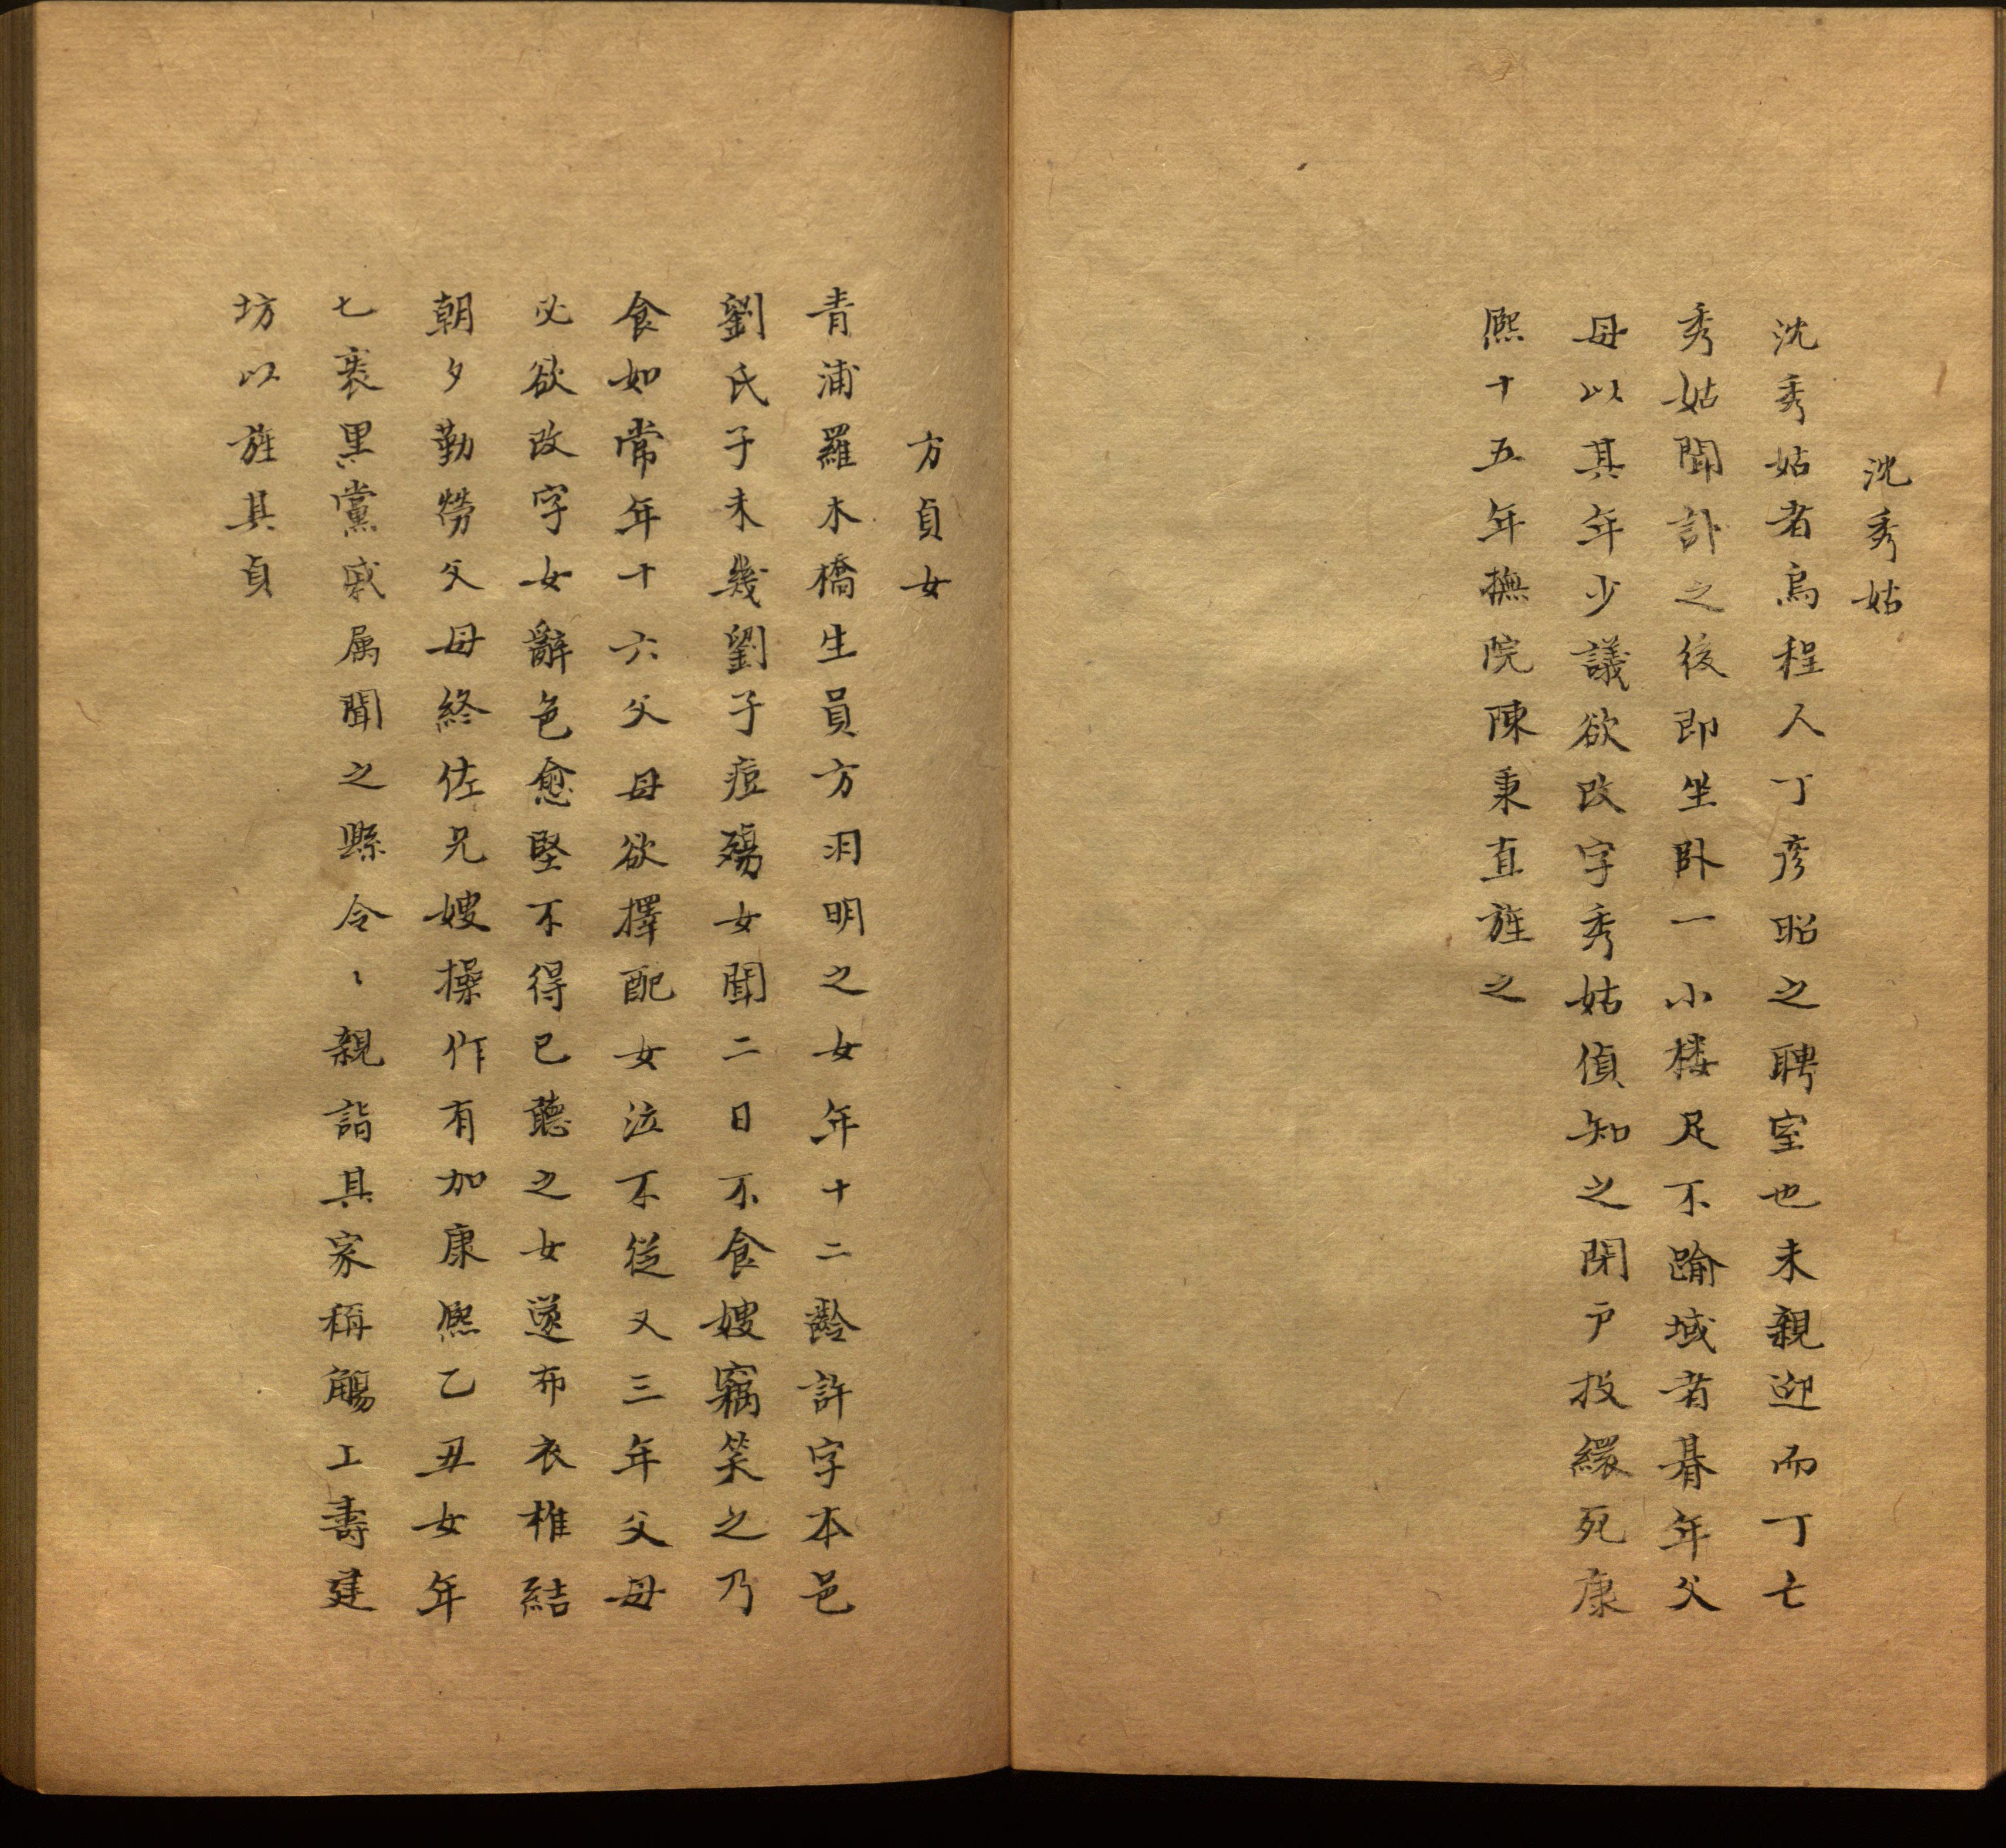 沈秀姑
沈秀姑者烏程人丁彦昭之聘室也未親迎而丁亡
秀姑聞訃之後即坐卧一小楼足不踰域者朞年父
母以其年少議欲改字秀姑偵知之閉户投繯死康
熈十五年撫院陳秉直旌之
方貞女
青浦羅木橋生員方羽明之女年十二齡許字本邑
劉氏子未幾劉子痘殤女聞二日不食嫂竊笑之乃
食如常年十六父母欲擇配女泣不從又三年父母
必欲改字女辭色愈堅不得已聽之女遂布衣椎結
朝夕勤勞父母終佐兄嫂操作有加康熈乙丑女年
七袠里黨戚属聞之縣令〻親詣其家稱觴上壽建
坊以旌其貞